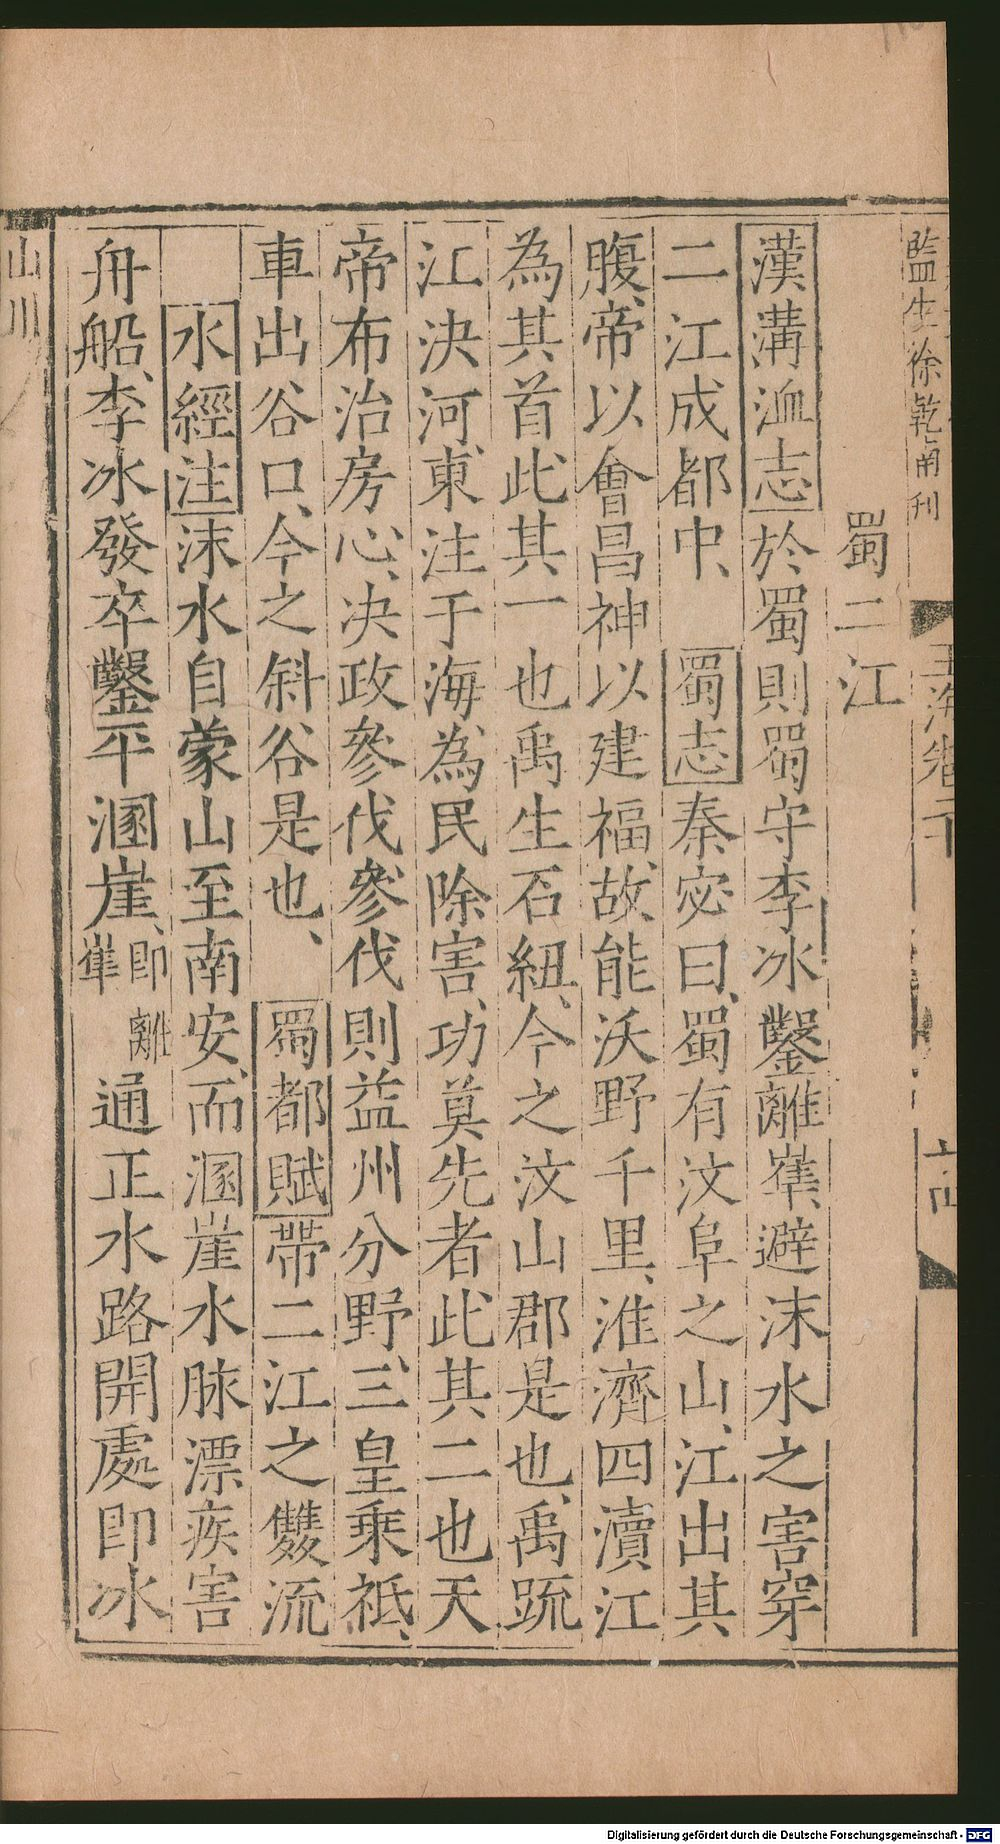 監生徐乾甫刊
玉海卷二十
蜀二江
漢溝洫志於蜀則蜀守李冰鑿離㠑、避沫水之害穿
二江成都中、蜀志秦宓曰、蜀有汶阜之山、江出其
腹、帝以會昌神以建福、故能沃野千里、淮濟四瀆江
為其首、此其一也禹生石紐、今之汶山郡是也、禹䟽
江決河、東注于海、為民除害、功莫先者此其二也天
帝布治房心、決政參伐參伐則益州分野、三皇乘祗、
車出谷口、今之斜谷是也、蜀都賦帶二江之雙流
水經注沫水自蒙山至南安、而溷崖水脉漂疾害
舟船、李冰發卒鑿平溷崖、即離㠑通正水路開處即冰
山川
Digitalisierung gefördert durch die Deutsche Forschungsgemeinschaft - DFG